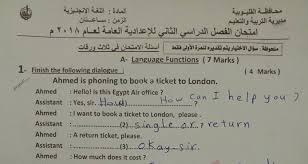 محافظة القليوبية
مديرية التربية والتعليم
المادة : اللغة الإنجليزية
الزمن : ساعتان
امتحان الفصل الدراسي الثاني للإعدادية العامة لعام ٢٠١٨ م
أسئلة الامتحان في ثلاث ورقات
A- Language Functions ( 7 Marks )
1- Finish the following dialogue : ( 4 Marks )
Ahmed is phoning to book a ticket to London.
Ahmed : Hello! Is this Egypt Air office ?
Assistant : Yes, sir. How can I help you ?
Ahmed : I want to book a ticket to London, please .
Assistant : (2) single or return
Ahmed : A return ticket, please.
Assistant : (3) okay sir.
Ahmed : How much does it cost ?